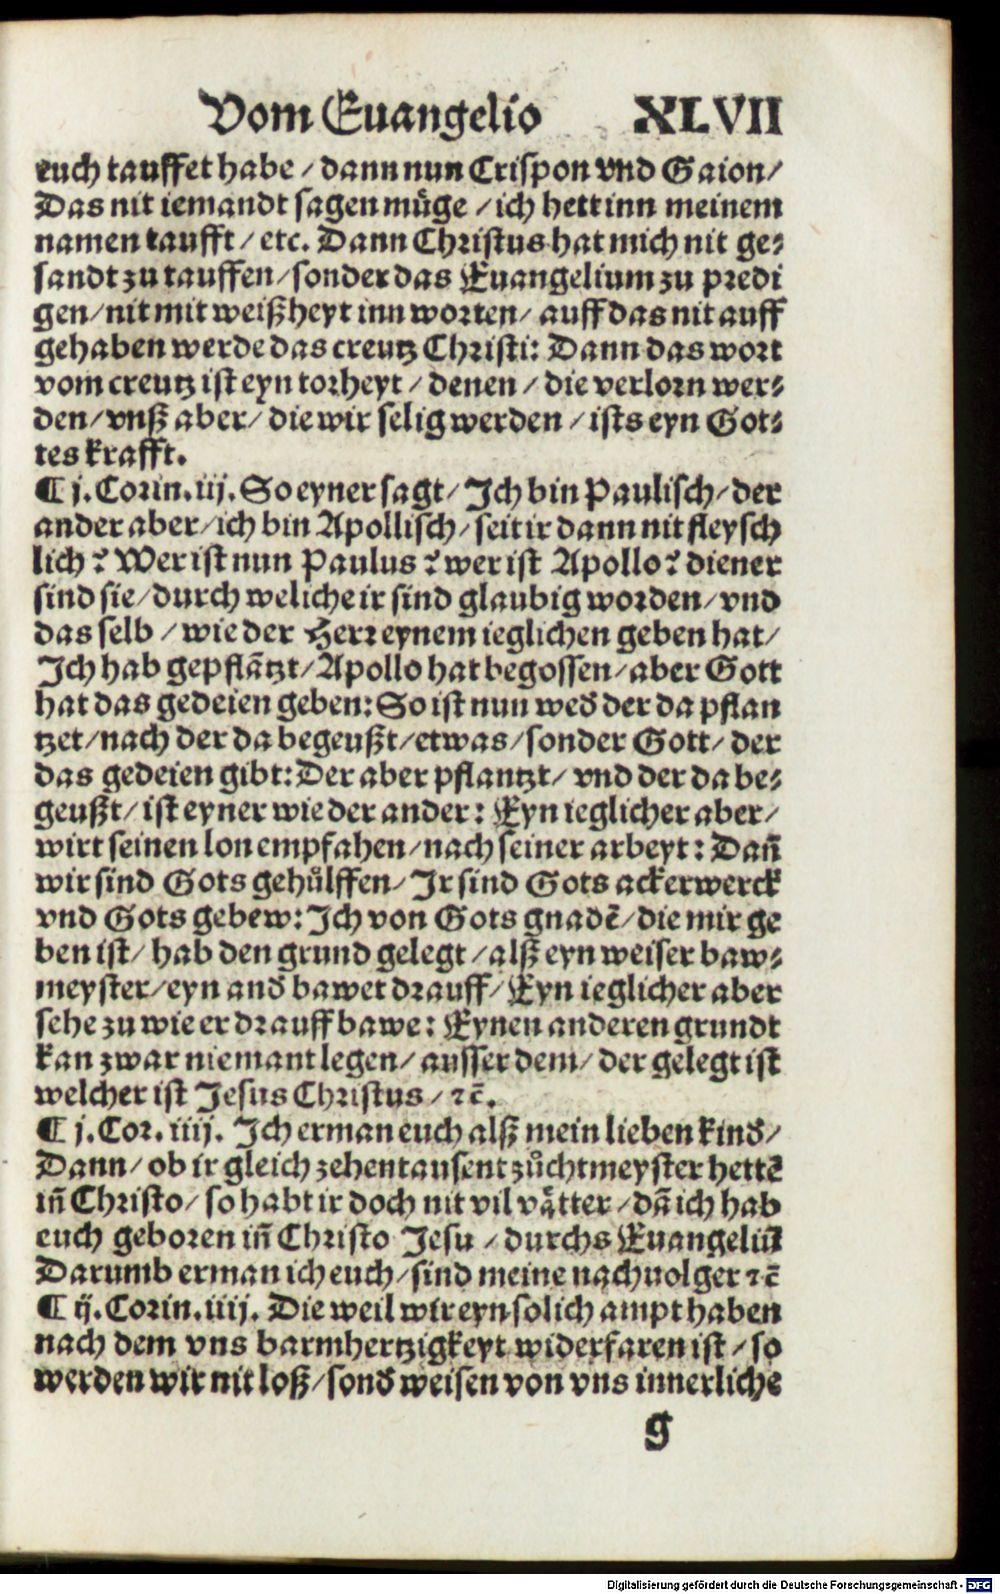 Vom Euangelio XLVII
euch tauffet habe / dann nun Crispon vnd Gaion/
Das nit iemandt sagen mu̔ge / ich hett inn meinem
namen taufft / etc. Dann Christus hat mich nit ge⸗
sandt zu tauffen/ sonder das Euangelium zu predi
gen/ nit mit weißheyt inn worten/ auff das nit auff
gehaben werde das creutz Christi: Dann das wort
vom creutz ist eyn torheyt / denen / die verlorn wer⸗
den/ vnß aber/ die wir selig werden / ists eyn Got⸗
tes krafft.
¶ j. Corin. iij. So eyner sagt/ Ich bin Paulisch/ der
ander aber/ ich bin Apollisch/ seit ir dann nit fleysch
lich? Wer ist nun Paulus? wer ist Apollo? diener
sind sie/ durch weliche ir sind glaubig worden/ vnd
das selb / wie der Herr eynem ieglichen geben hat/
Ich hab gepflãtzt/ Apollo hat begossen/ aber Gott
hat das gedeien geben: So ist nun wed̛ der da pflan
tzet/ nach der da begeußt/ etwas/ sonder Gott/ der
das gedeien gibt: Der aber pflantzt/ vnd der da be⸗
geußt/ ist eyner wie der ander: Eyn ieglicher aber/
wirt seinen lon empfahen/ nach seiner arbeyt: Dañ
wir sind Gots gehuͤlffen/ Ir sind Gots ackerwerck
vnd Gots gebew: Ich von Gots gnadẽ/ die mir ge
ben ist/ hab den grund gelegt / alß eyn weiser baw⸗
meyster/ eyn and̛ bawet drauff/ Eyn ieglicher aber
sehe zu wie er drauff bawe: Eynen anderen grundt
kan zwar niemant legen/ ausser dem/ der gelegt ist
welcher ist Jesus Christus / ⁊c̃.
¶ j. Cor. iiij. Ich erman euch alß mein lieben kind̛/
Dann/ ob ir gleich zehentausent zuͤchtmeyster hettẽ
iñ Christo/ so habt ir doch nit vil vaͤtter / dã ich hab
euch geboren iñ Christo Jesu / durchs Euangeliũ
Darumb erman ich euch/ sind meine nachuolger ⁊c̃
¶ ij. Corin. iiij. Die weil wir eyn solich ampt haben
nach dem vns barmhertzigkeyt widerfaren ist / so
werden wir nit loß/ sond̛ weisen von vns innerliche
g
Digitalisierung gefördert durch die Deutsche Forschungsgemeinschaft - DFG